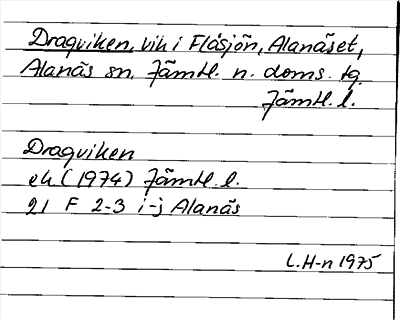 Dragviken, vik i Flåsjön, Alanäset,
Alanäs sn. Jämtl. n. doms. tg.
Jämtl. l.
Dragviken
ek (1974) Jämtl. l.
21 F 2-3 i-j Alanäs
L. H-n 1975